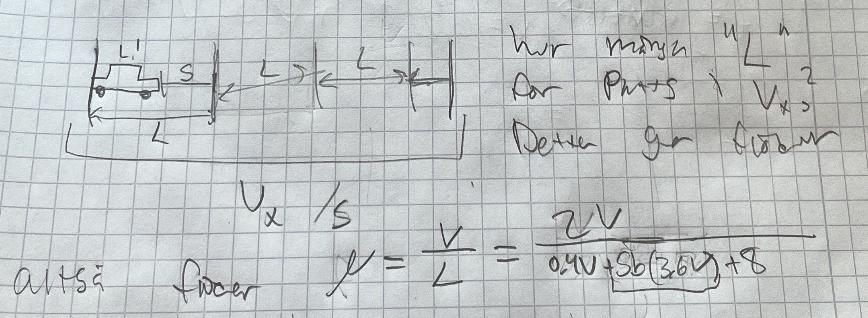 L'
S
L
L
L
hur många "L"
får plats i Vx?
Detta ger flöder
Vx /s
altså flöder μ = V/L = 2V/(0.4V+Sb(3.6V)+8)